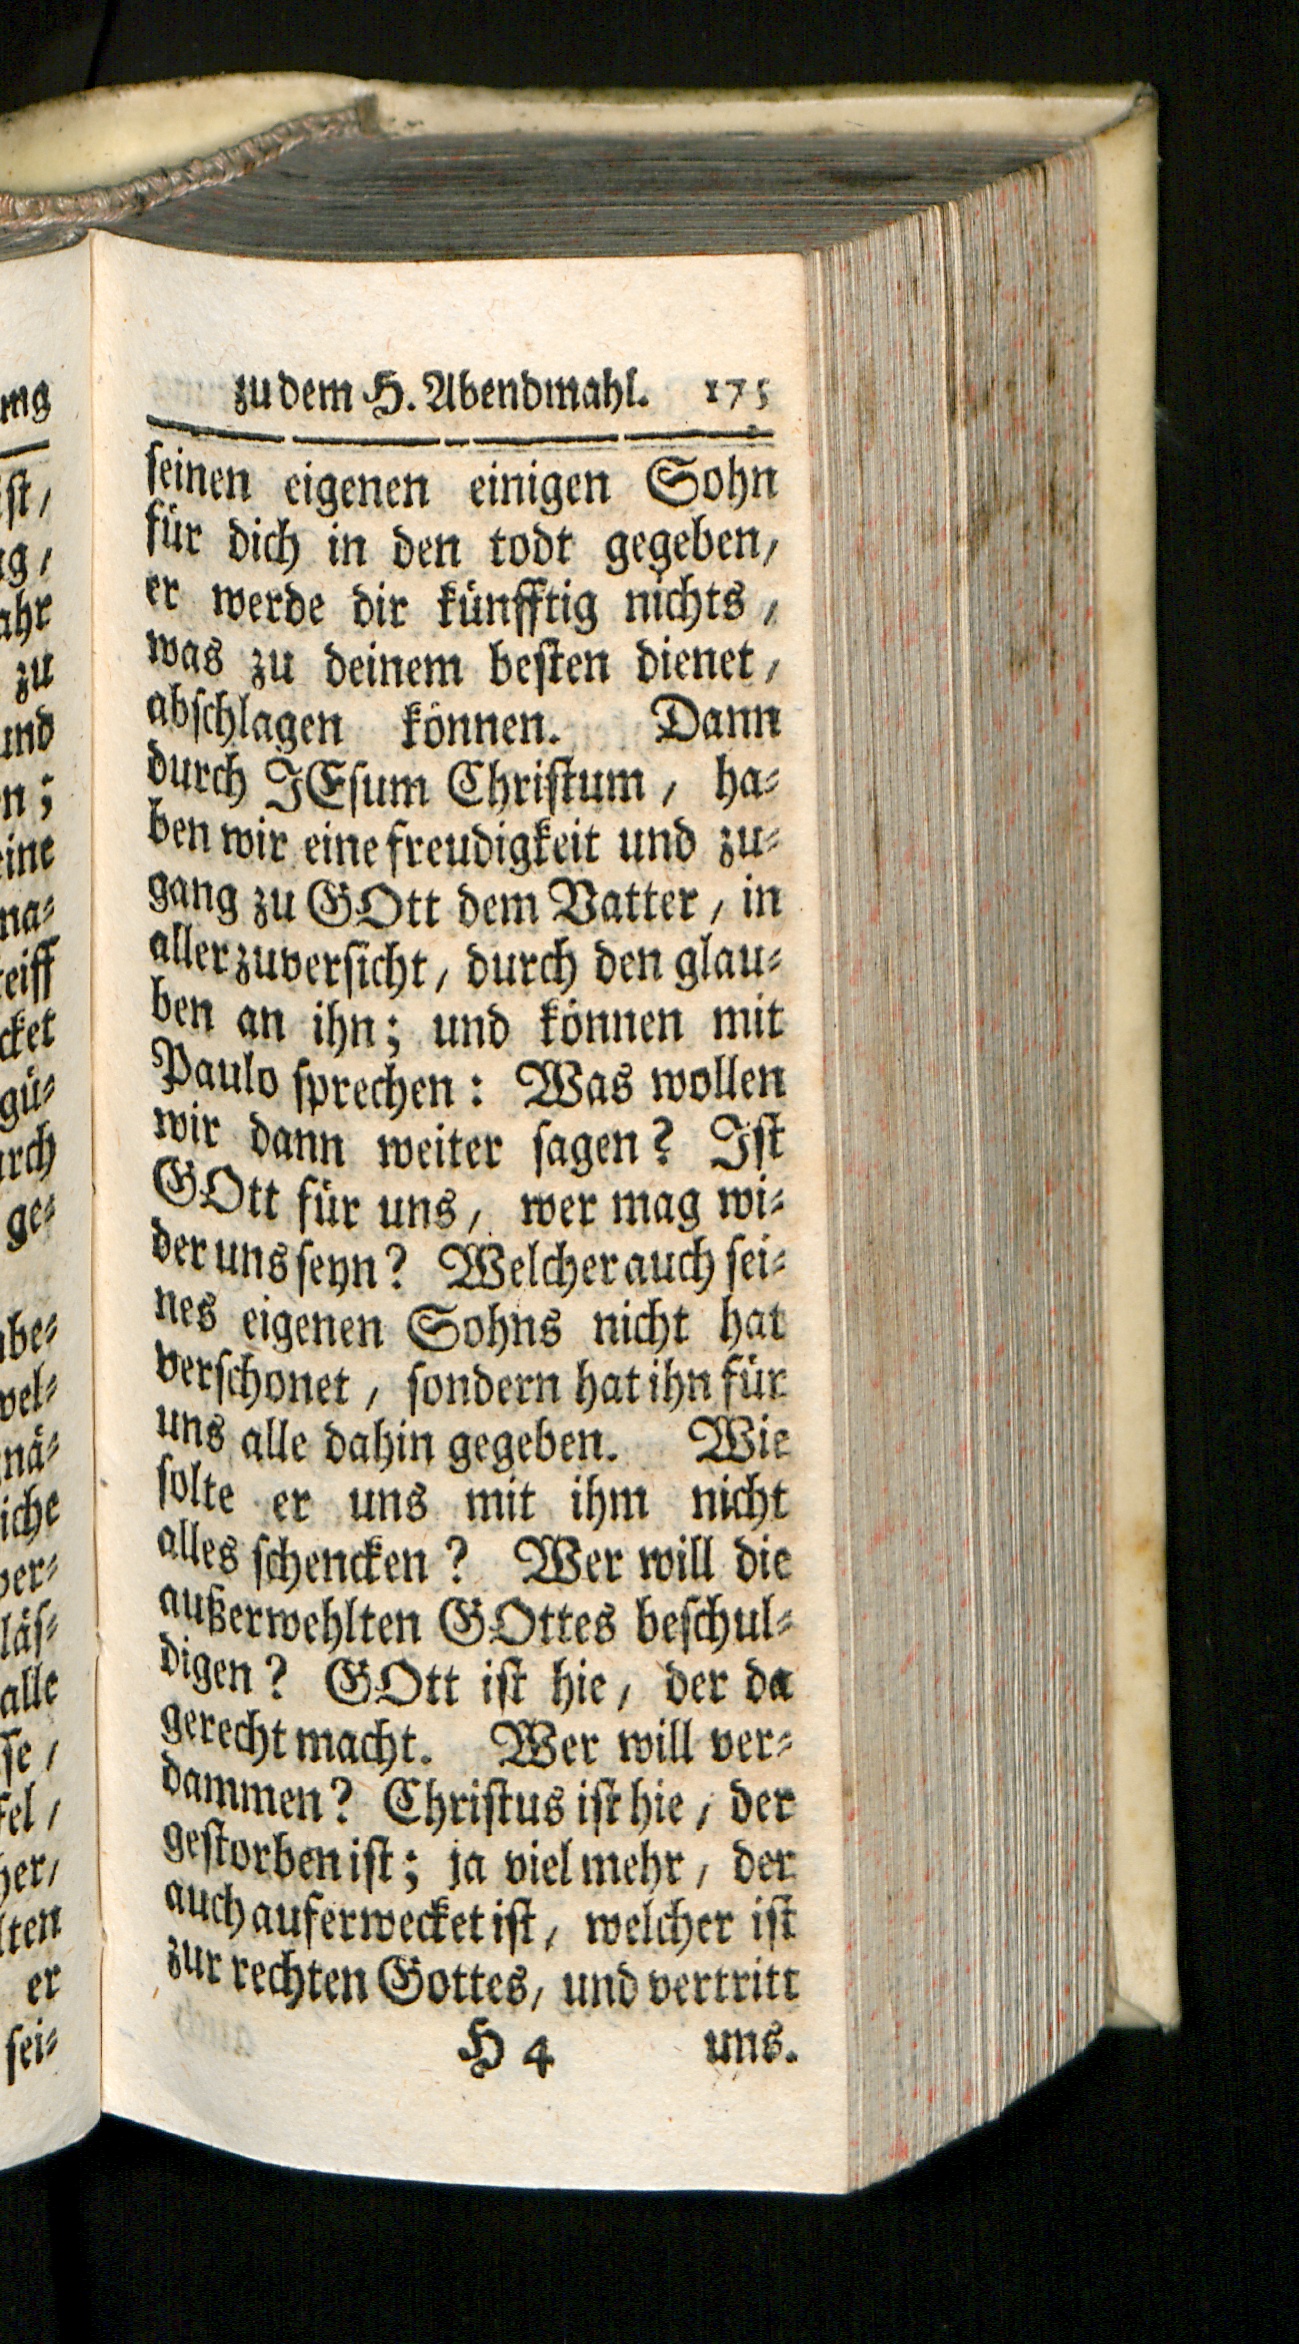 zu dem H. Abendmahl. 175
seinen eigenen einigen Sohn
für dich in den todt gegeben,
er werde dir künfftig nichts,
was zu deinem besten dienet,
abschlagen können. Dann
durch JEsum Christum, ha-
ben wir eine freudigkeit und zu-
gang zu GOtt dem Vatter, in
aller zuversicht, durch den glau-
ben an ihn; und können mit
Paulo sprechen: Was wollen
wir dann weiter sagen? Ist
GOtt für uns, wer mag wi-
der uns seyn? Welcher auch sei-
nes eigenen Sohns nicht hat
verschonet, sondern hat ihn für
uns alle dahin gegeben. Wie
solte er uns mit ihm nicht
alles schencken? Wer will die
außerwehlten GOttes beschul-
digen? GOtt ist hie, der da
gerecht macht. Wer will ver-
dammen? Christus ist hie, der
gestorben ist; ja viel mehr, der
auch auferwecket ist, welcher ist
zur rechten Gottes, und vertritt
H 4 uns.